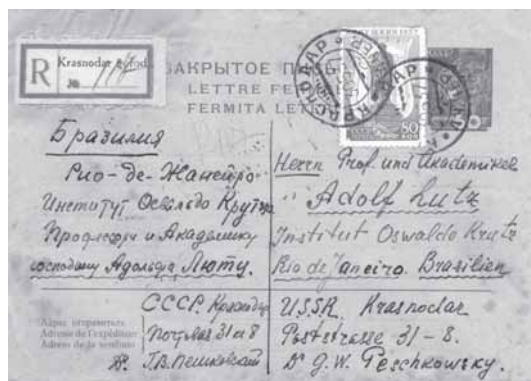 R Krasnodar gorod
№ 
ЗАКРЫТОЕ
LETTRE
FERMITA
Бразилия
Рио-де-Жанейро
Институт Освальдо Крутца
Профессору и Академику
господину Адольфу Лютцу.
Herrn Prof. und Akademiker
Adolf Lutz
Institut Oswaldo Krutz
Rio de Janeiro. Brasilien
Адрес отправителя
Adresse de l'expéditeur
Adreso de la sendinto
СССР. Краснодар
31 а 8
Г.В. Пешковский
U.S.S.R. Krasnodar
Poststrasse 31 - 8.
Dr G. W. Peschkowsky.
80
КРАСНОДАР